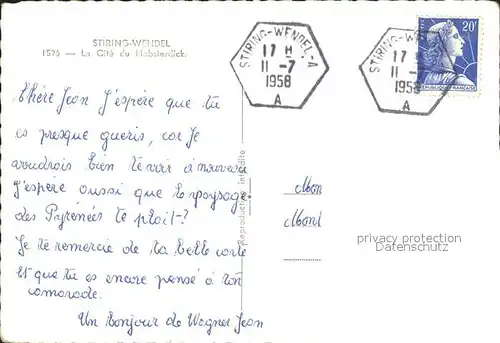 STIRING-WENDEL
1575 — La Cité du Habsterdick.
STIRING-WENDEL-A
17 H
11-7
1958
A
STIRING-WE
17
11-
1958
A
20F
REPUBLIQUE FRANÇAISE
Chère Jean J'espère que tu
es presque gueris, car Je
voudrois bien te voir à nouveau
J'espère aussi que le paysage
des Pyrénées te plait?
Je te remercie de ta belle carte
Et que tu as encore pensé à ton
camarade.
Un bonjour de Wagner Jean
Reproduction interdite
Mon
Mont
privacy protection
Datenschutz